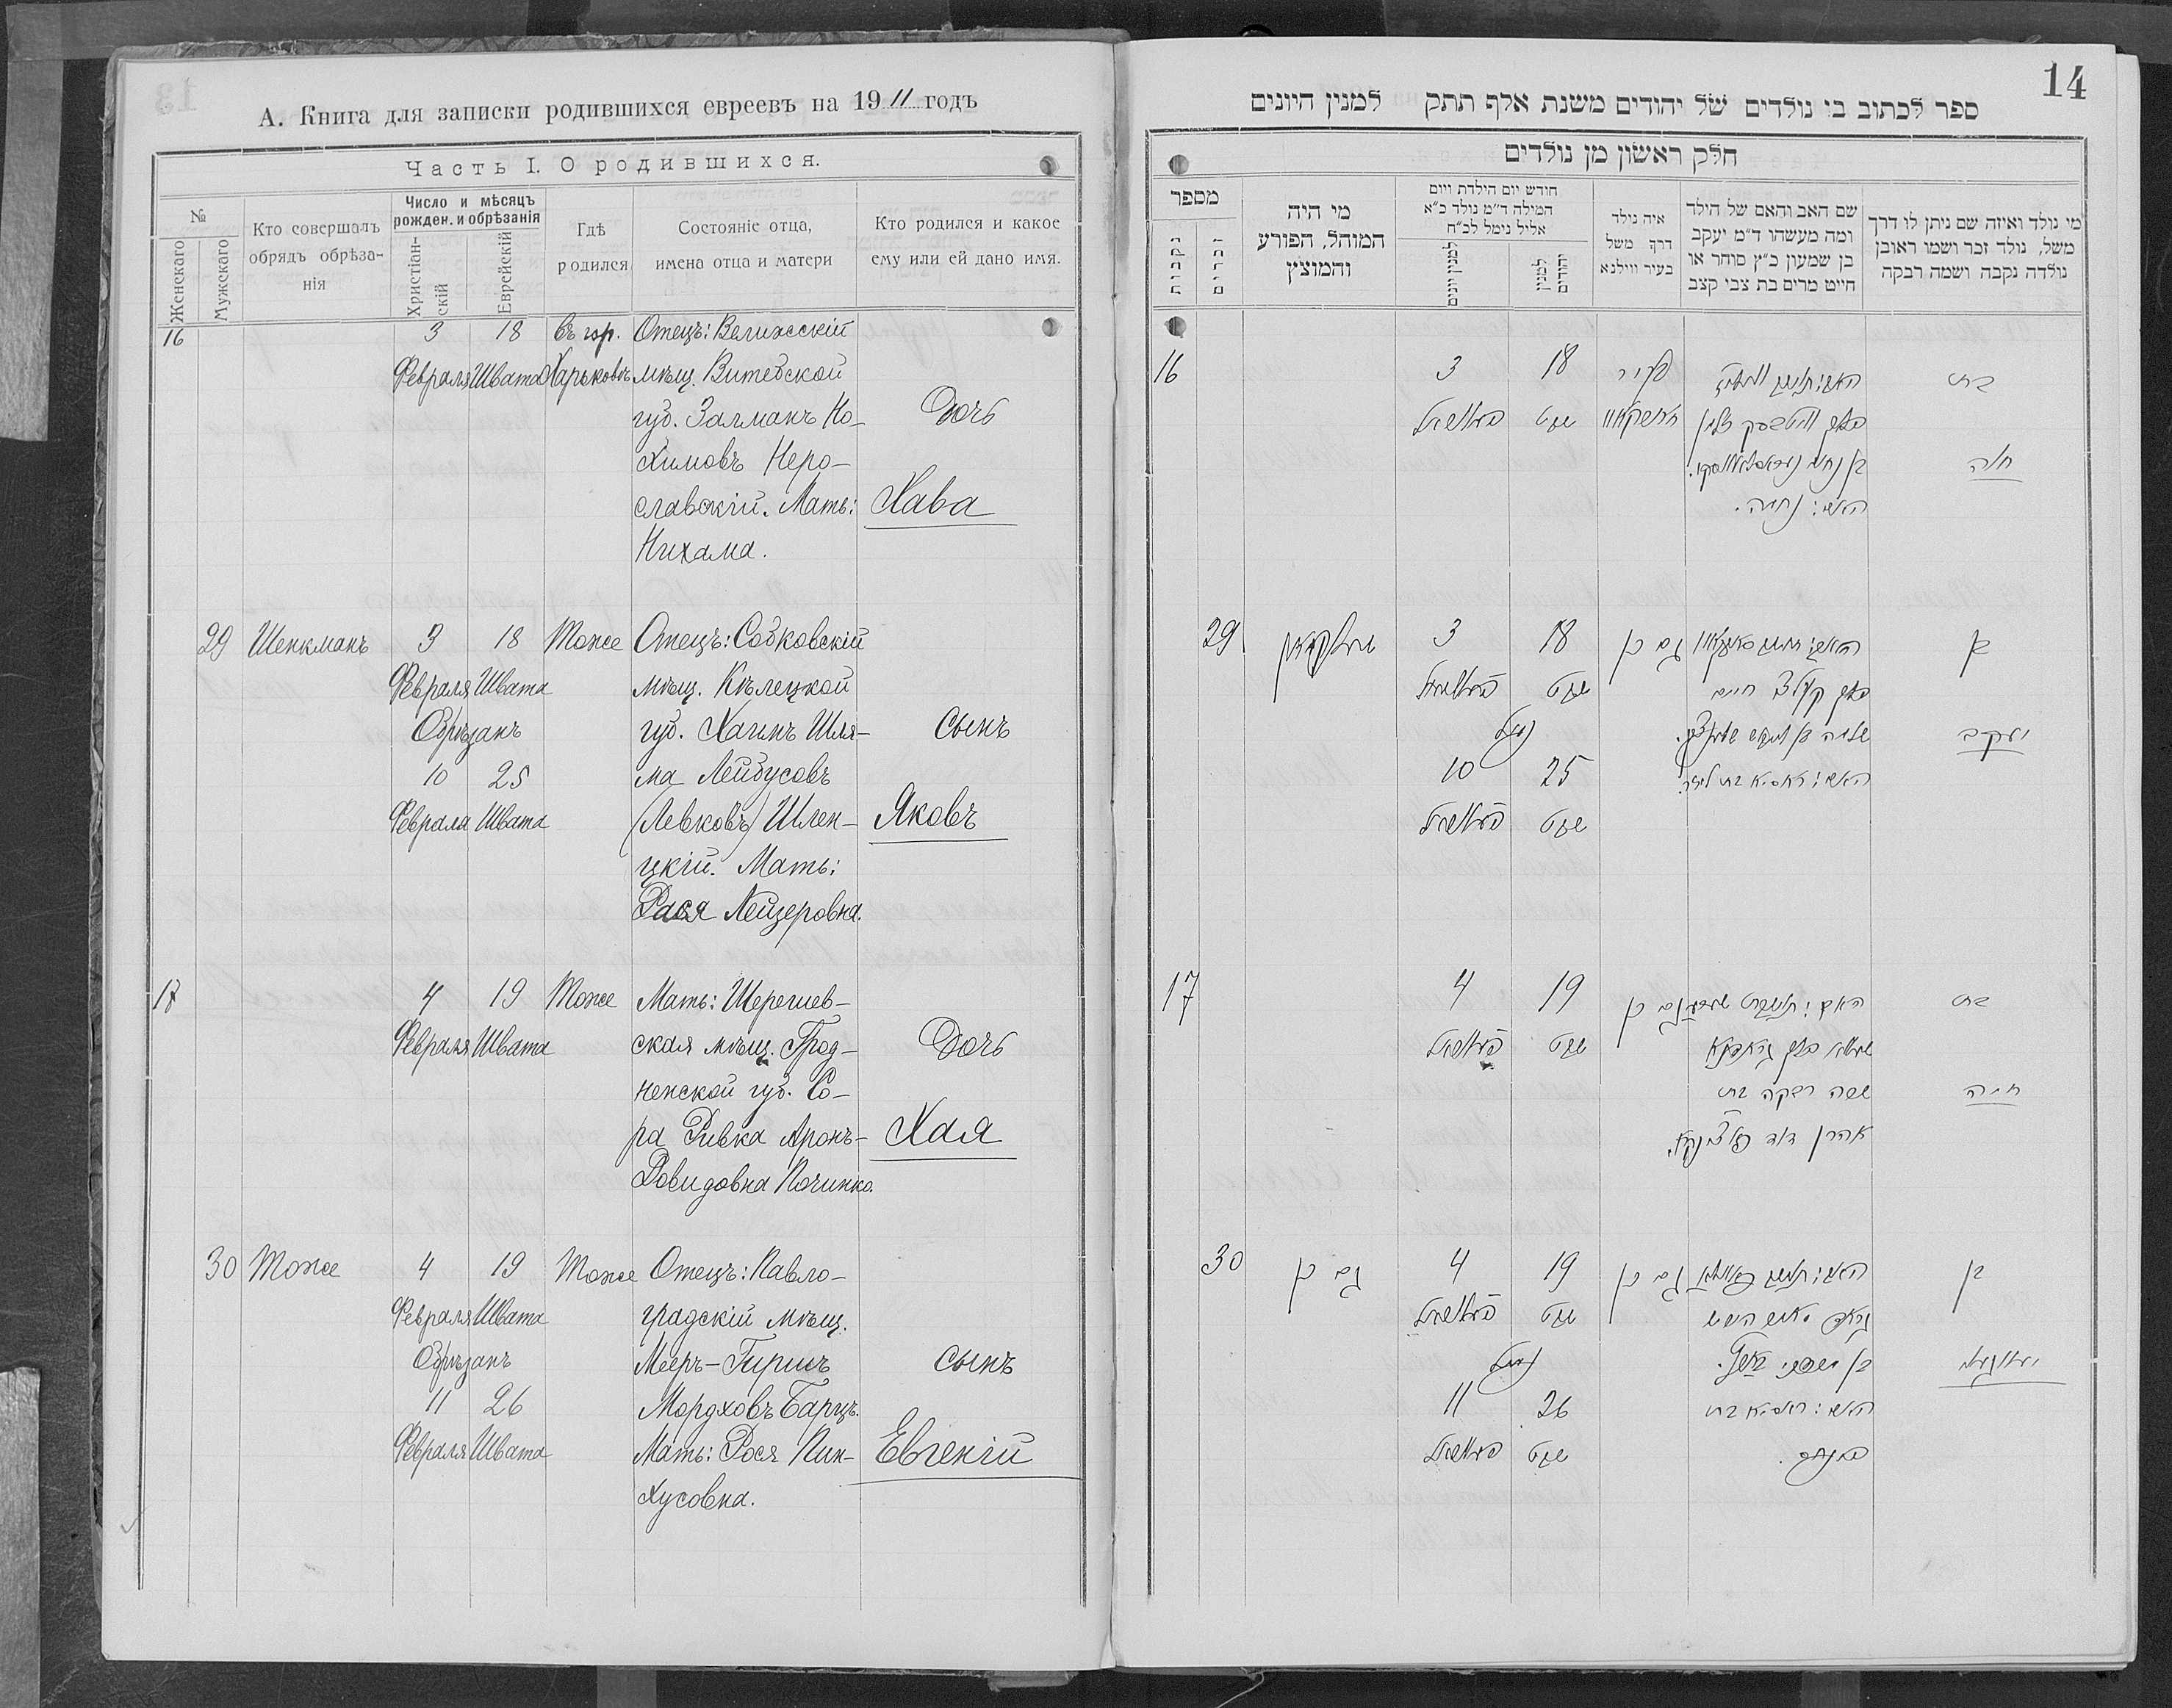 А. Книга для записки родившихся евреевъ на 1911 годъ
Часть I. О родившихся.
№
Женскаго
Мужскаго
Кто совершалъ
обрядъ обрѣза-
нія
Число и мѣсяцъ
рожден. и обрѣзанія
Христіан-
скій
Еврейскій
Гдѣ
родился
Состояніе отца,
имена отца и матери
Кто родился и какое
ему или ей дано имя.
16
3 18
Февраля Швата
въ гор.
Харьковѣ
Отецъ: Велижскій
мѣщ. Витебской
губ. Залманъ Но-
химовъ Неро-
славскій. Мать:
Нихама.
Дочь
Хава
29 Шенкманъ
3 18
Февраля Швата
Обрѣзанъ
10 25
Февраля Швата
Тоже
Отецъ: Собковскій
мѣщ. Кѣлецкой
губ. Хаимъ Шля-
ма Лейбусовъ
(Левковъ) Шлен-
цкій. Мать:
Рася Лейзеровна.
сынъ
Яковъ
17
4 19
Февраля Швата
Тоже
Мать: Шерешев-
ская мѣщ. Грод-
ненской губ. Со-
ра Ривка Аронъ-
Довидовна Починко.
Дочь
Хая
30 Тоже
4 19
Февраля Швата
Обрѣзанъ
11 26
Февраля Швата
Тоже
Отецъ: Павло-
градскій мѣщ.
Мееръ-Гиршъ
Мордховъ Барцъ.
Мать: Рося Пин-
хусовна.
сынъ
Евгеній
14
ספר לכתוב בו נולדים של יהודים משנת אלף תתק למנין היונים
חלק ראשון מן נולדים
מי נולד ואיזה שם ניתן לו דרך
משל, נולד זכר ושמו ראובן
נולדה נקבה ושמה רבקה
שם האב והאם של הילד
ומה מעשהו ד״מ יעקב
בן שמעון כ״ץ סוחר או
חייט מרים בת צבי קצב
איה נולד
דרך משל
בעיר ווילנא
חודש יום הילדת ויום
המילה ד״מ נולד כ״א
אליל נימל לכ״ח
למנין יהודים
למנין יונים
מי היה
המוהל, הפורע
והמוצץ
מספר
זכרים
נקבות
16
3 18
שבט
בעיר
בת
חוה
29
3 18
שבט
נימול
10 25
שבט
גם כן
בן
יעקב
17
4 19
שבט
גם כן
שרה רבקה בת
אהרן דוד
בת
חיה
30
גם כן
4 19
שבט
נימול
11 26
שבט
גם כן
בן